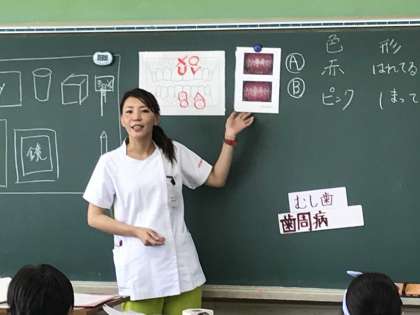 色 形
Ⓐ 赤 はれてる
Ⓑ ピンク しまって
鏡
むし歯
歯周病